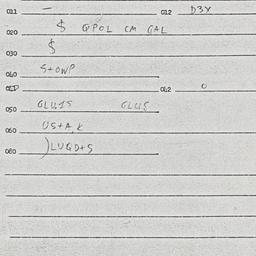 011 — 012 D3X
020 $ QPOL CM CAL
030 $
040 S+OWP
012 O
050 GLUIS GLUS
060 US+A,K
080 )LUGD+S